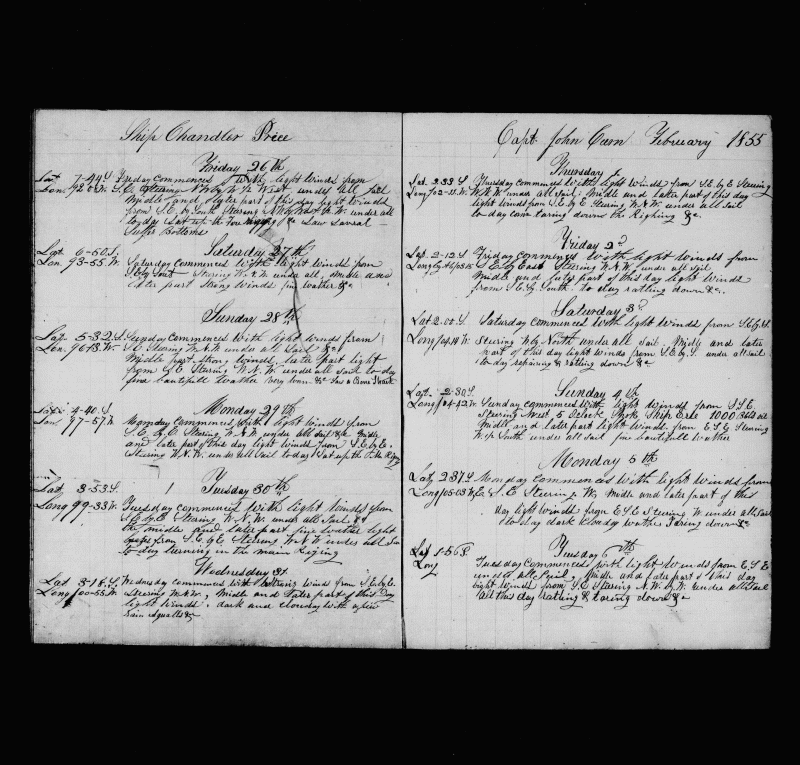 Ship Chandler Price
Friday 26th
Lat 7-44 S. Friday commences with light winds from
Lon. W. S.E. Steering N.W by W ½ West under all sail
Middle and later part of this day light winds
from S.E. by South Steering under all
to day Sat up the Fore &c Saw Several
Sulfer Bottoms
Saturday 27th
Lat 6-50 S. Saturday commences with light winds from
Lon. 93-55 W. S.E by South Steering W.N.W under all, Middle and
later part Strong winds fine wather &c
Sunday 28th
Lat. 5-32 S. Sunday commences with light winds from
Lon. 96 W. S.E. Steering W.N.W under all Sail &c
Middle part strong winds, later part light
from S.E Steering W.N.W. under all sail to day
fine beautifull weather very warm &c Saw a
Monday 29th
Lat 4-40 S. Monday commences with light winds from
Lon. 97-57 W S.E. by E. Steering W.N.W under all sail &c Middle
and later part of this day light winds from S.E by E.
Steering W.N.W. under all Sail to day Sat up the
Tuesday 30th
Lat 3-53 S. Tuesday commences with light winds from
Long 99-33 W. S.E by E. Steering W.N.W. under all Sail &c
the middle and later part fine wather light
from S.E by E Steering W.N.W under all Sail
to day in the main Riging
Wednesday 31
Lat 3-18 S. Wednesday commences with Strong winds from S.E by E.
Long 100-55 W. Steering W.N.W., Middle and Later part of this Day
light winds. dark and cloudy with
rain Squalls &c
Capt. John February 1855
Thursday 1
Lat. 2 33 S. Thursday commences with light winds from S.E. by E Steering
Long 102 W. W.N.W under all Sail; Middle and later part of this day
light winds from S.E by E Steering W.N.W. under all sail
to day taring down the Righing &c.
Friday 2d
Lat. 2-12 S. Friday commences with light winds from
Long S.E by East Steering W.N.W, under all sail
Middle and later part of this day light winds
from S.E. by South. to day ratling down &c.
Saturday 3d
Lat 2-00 S. Saturday commences with light winds from S.E. by S.
Long 104 W Steering W by North under all Sail. Middle and later
part of this day light winds from S.E by S. under all sail
to day repairing & ratling down &c
Sunday 4th
Lat. 2-30 S. Sunday commences with light winds from S.S.E.
Long 104-42 W. Steering West, 5 Oclock Spoke Ship Erie 1000 Bbls oil
Middle and later part light winds from E.S.E Steering
W. by South under all sail fine beautifull wather
Monday 5th
Lat, 2 37 S. Monday commences with light winds from
Long 105-03 W. E.S.E Steering W, Middle and later part of this
day light winds from E.S.E Steering W. under all Sail
to day dark cloudy wather Taring down &c
Tuesday 6th
Lat 1-56 S. Tuesday commences with light winds from E.S.E
Long under all Sail, Middle and later part of this day
light winds from S.E Steering N.W. by W. under all Sail
all this day ratling & taring down &c